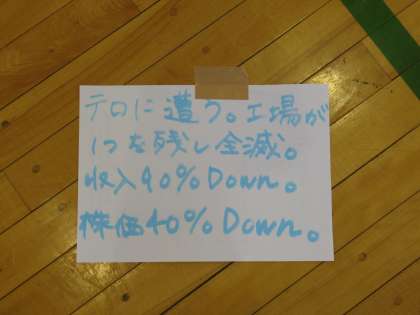 テロに遭う。工場が
1つを残し全滅。
収入90%Down。
株価40%Down。